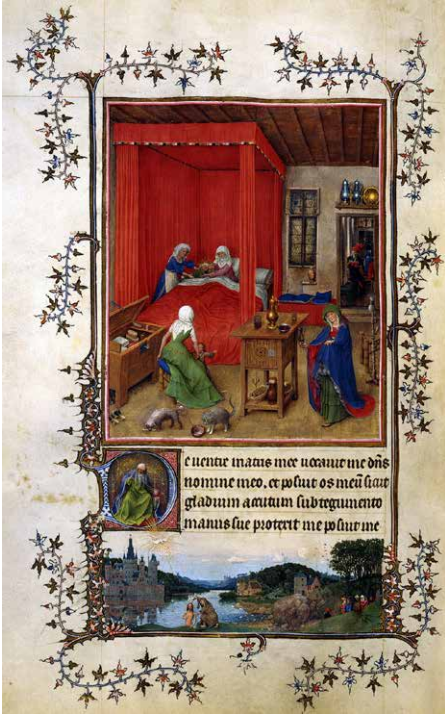 De uentre matris mee uocauit me dñs
nomine meo, et posuit os meū sicut
gladium acutum sub tegumento
manus sue protexit me posuit me